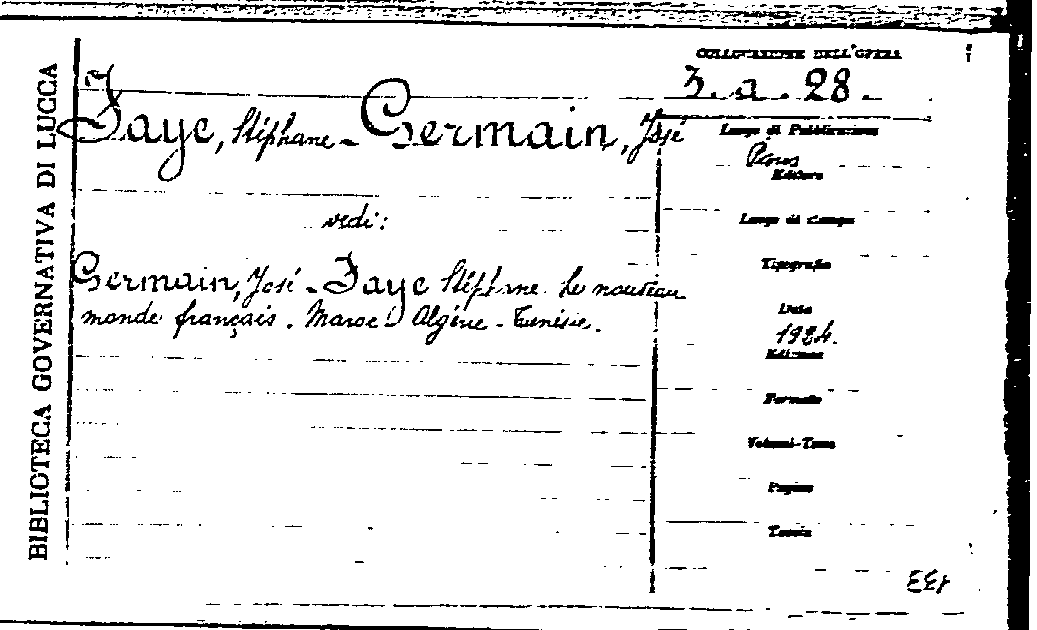 BIBLIOTECA GOVERNATIVA DI LUCCA
COLLOCAZIONE DELL'OPERA
3. a. 28.
Faye, Stéphane - Germain, José
vedi:
Germain, José - Faye Stéphane Le nouveau
monde français. Maroc - Algérie - Tunisie.
Luogo di Pubblicazione
Paris
Editore
Luogo di stampa
Tipografia
Data
1924.
Edizione
Formato
Volumi-Tomo
Pagine
Tavole